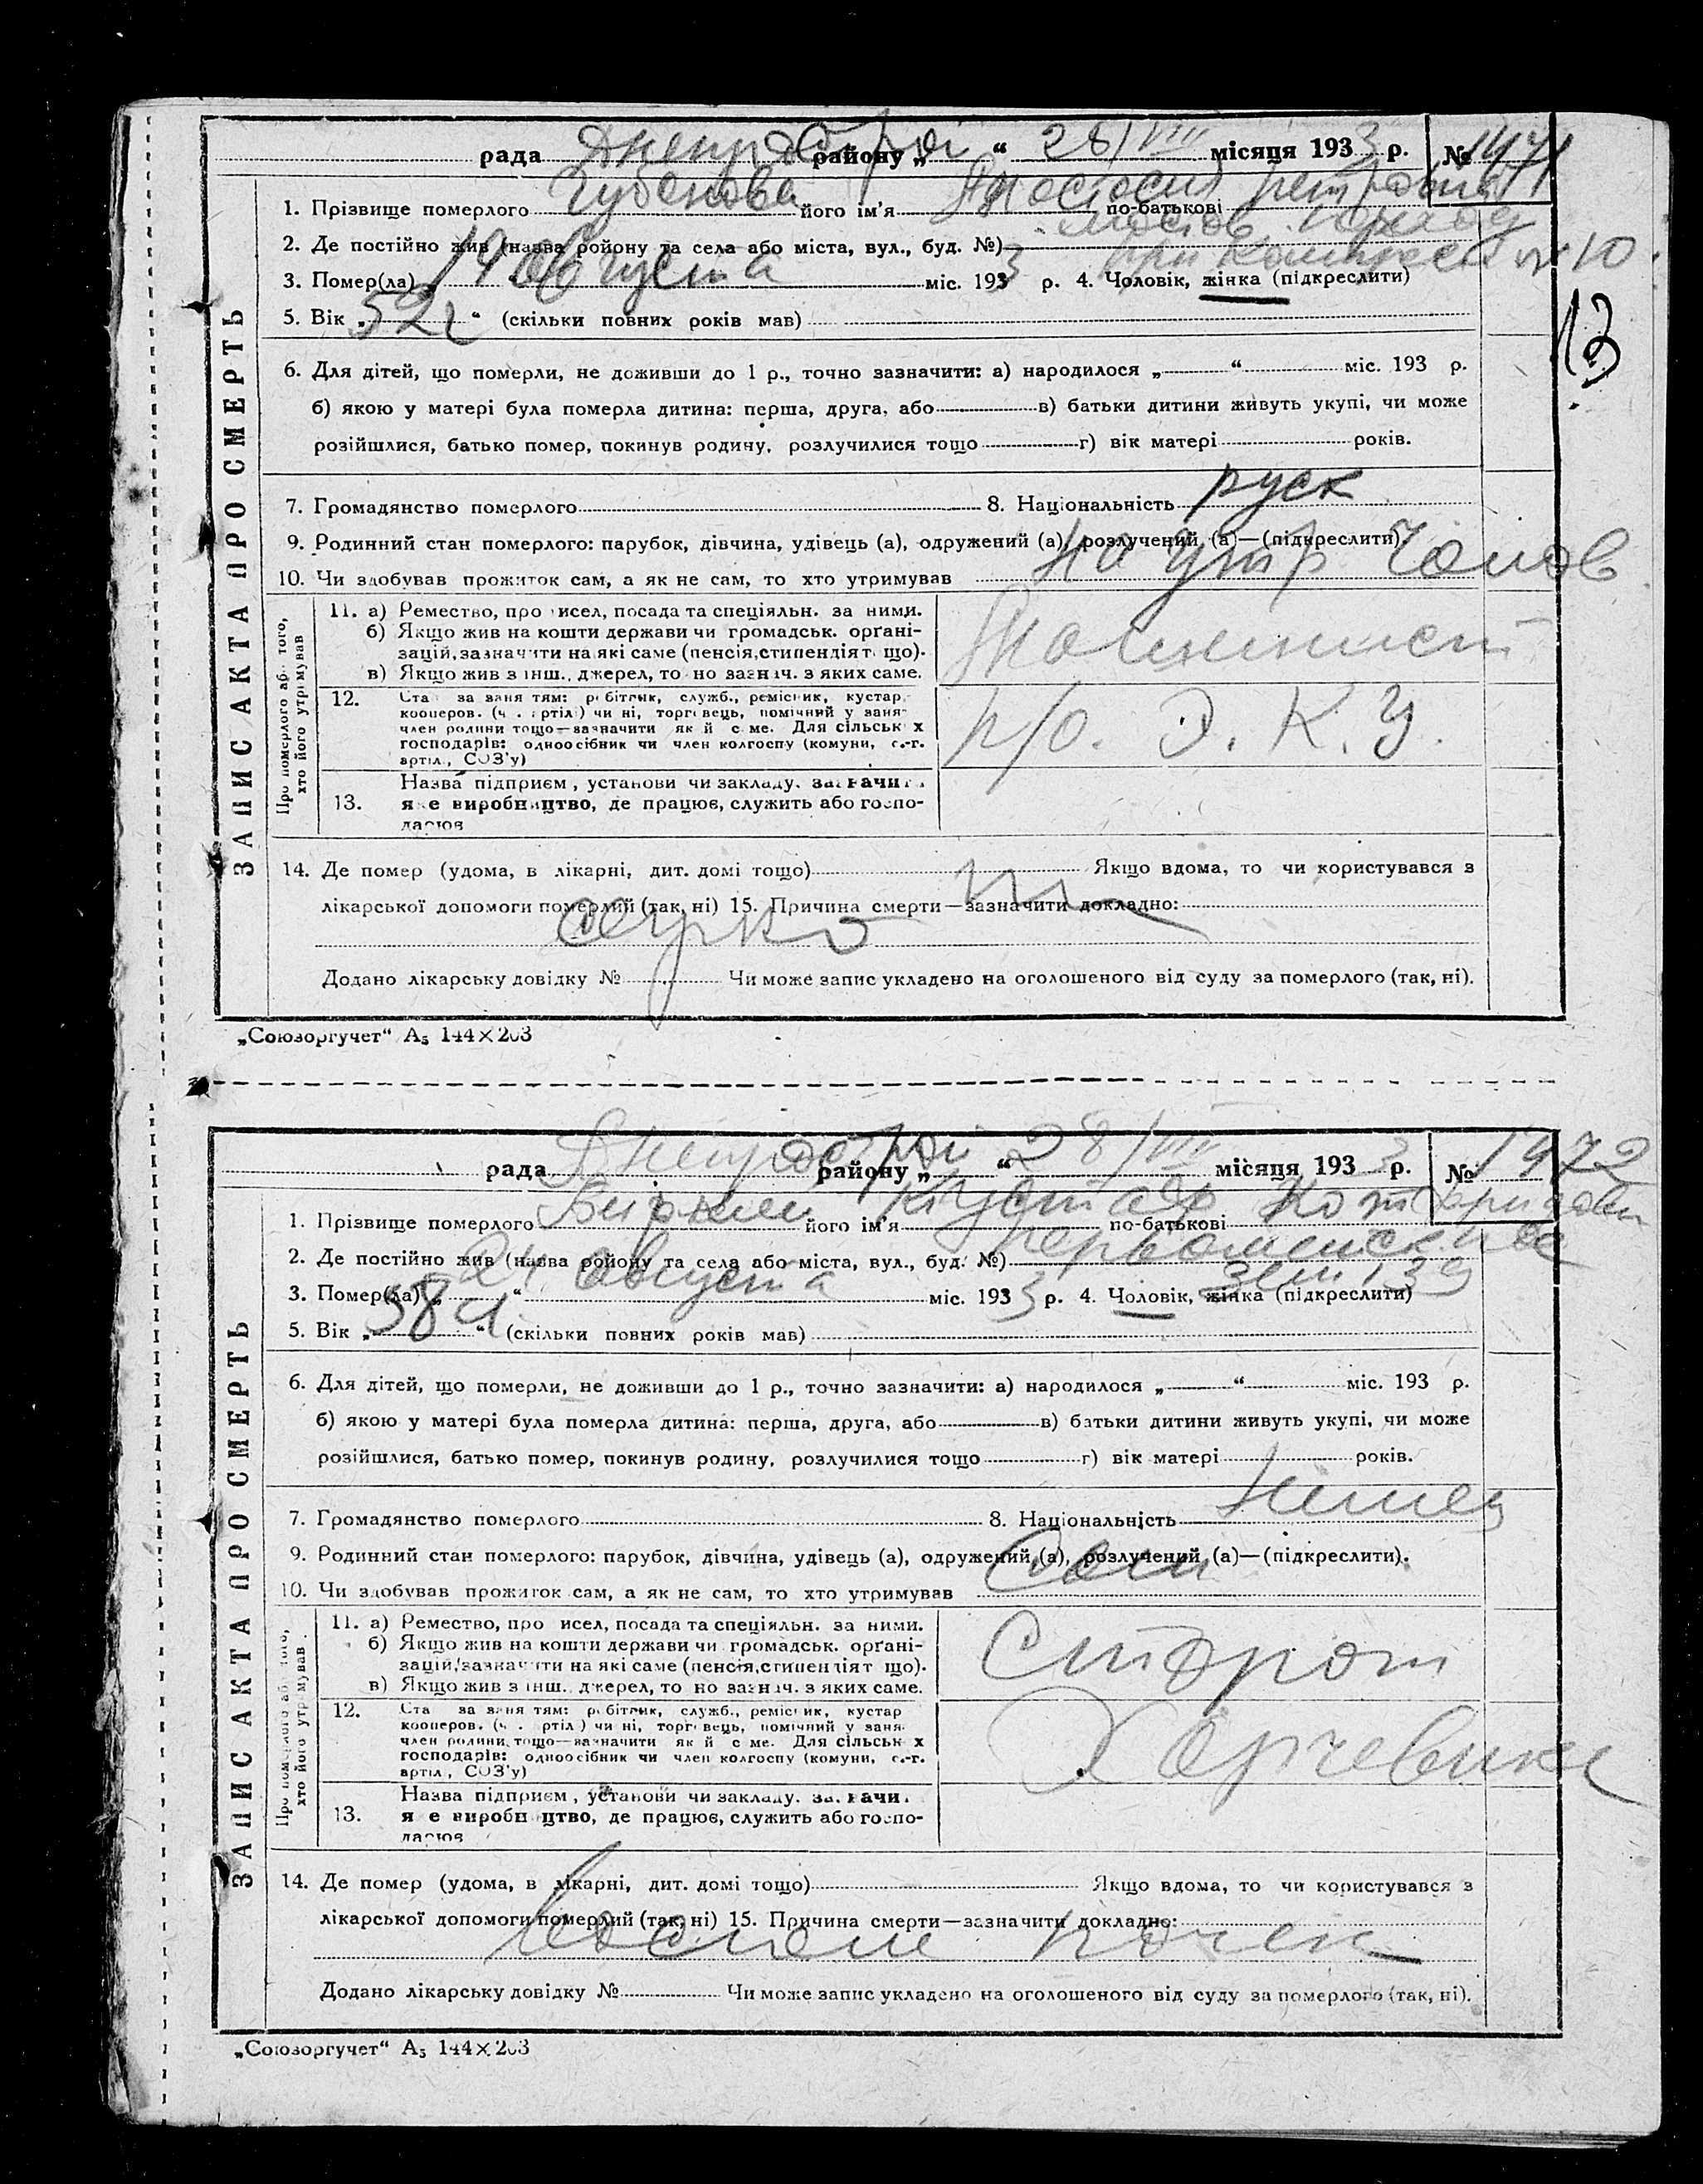 рада Днепрострой району „ “ 28/VIII місяця 1933 р. № 1471
1. Прізвище померлого Губанова його ім’я Анастасия по-батькові Петровна
2. Де постійно жив (назва ройону та села або міста, вул., буд. №)
3. Помер(ла) 19 августа міс. 1933 р. 4. Чоловік, жінка (підкреслити) № 10
5. Вік „52 г“ (скільки повних років мав)
13
6. Для дітей, що померли, не доживши до 1 р., точно зазначити: а) народилося „ “ міс. 193 р.
б) якою у матері була померла дитина: перша, друга, або в) батьки дитини живуть укупі, чи може
розійшлися, батько помер, покинув родину, розлучилися тощо г) вік матері років.
7. Громадянство померлого 8. Національність руск
9. Родинний стан померлого: парубок, дівчина, удівець (а), одружений (а), розлучений (а)—(підкреслити).
10. Чи здобував прожиток сам, а як не сам, то хто утримував
ЗАПИС АКТА ПРО СМЕРТЬ
Про померлого аб того, хто його утримував
11. а) Ремество, про исел, посада та спеціяльн. за ними.
б) Якщо жив на кошти держави чи громадськ. орґані-
зацій, зазначити на які саме (пенсія, стипендіят що).
в) Якщо жив з інш., джерел, то но зазнач. з яких саме.
12. Ста за заня тям: робітник, служб., ремісник, кустар,
кооперов. (ч . ртіл) чи ні, торговець, помічний у заня-
член родини тощо—зазначити як й с ме. Для сільськ х
господарів: одноосібник чи член колгоспу (комуни, с.-г.
артіл., СОЗ'у)
р/о. Э. К. У.
Назва підприєм , установи чи закладу. зазначи
13. я е виробництво, де працює, служить або госпо-
дарює
14. Де помер (удома, в лікарні, дит. домі тощо) Якщо вдома, то чи користувався з
лікарської допомоги померлий (так, ні) 15. Причина смерти—зазначити докладно:
Додано лікарську довідку № Чи може запис укладено на оголошеного від суду за померлого (так, ні).
„Союзоргучет“ А₅ 144×203
рада Днепрострой району „ “ 28/VIII місяця 1933 р. № 1472
1. Прізвище померлого його ім’я Густав по-батькові
2. Де постійно жив (назва ройону та села або міста, вул., буд. №)
3. Помер(ла) „24“ августа міс. 1933 р. 4. Чоловік, жінка (підкреслити)
5. Вік „58 л“ (скільки повних років мав)
6. Для дітей, що померли, не доживши до 1 р., точно зазначити: а) народилося „ “ міс. 193 р.
б) якою у матері була померла дитина: перша, друга, або в) батьки дитини живуть укупі, чи може
розійшлися, батько помер, покинув родину, розлучилися тощо г) вік матері років.
7. Громадянство померлого 8. Національність Немец
9. Родинний стан померлого: парубок, дівчина, удівець (а), одружений (а), розлучений (а)—(підкреслити).
10. Чи здобував прожиток сам, а як не сам, то хто утримував Сам
ЗАПИС АКТА ПРО СМЕРТЬ
Про померлого аб того, хто його утримував
11. а) Ремество, про исел, посада та спеціяльн. за ними.
б) Якщо жив на кошти держави чи громадськ. орґані-
зацій, зазначити на які саме (пенсія, стипендіят що).
в) Якщо жив з інш., джерел, то но зазнач. з яких саме.
Сторож
12. Ста за заня тям: робітник, служб., ремісник, кустар
кооперов. (ч . ртіл) чи ні, торговець, помічний у заня-
член родини, тощо—зазначити як й с ме. Для сільськ х
господарів: одноосібник чи член колгоспу (комуни, с.-г.
артіл., СОЗ'у)
Назва підприєм , установи чи закладу. за. начи.
13. я е виробн цтво, де працює, служить або госпо-
дарює
14. Де помер (удома, в лікарні, дит. домі тощо) Якщо вдома, то чи користувався з
лікарської допомоги померлий (так, ні) 15. Причина смерти—зазначити докладно:
Воспален почек
Додано лікарську довідку № Чи може запис укладено на оголошеного від суду за померлого (так, ні).
„Союзоргучет“ А₅ 144×203